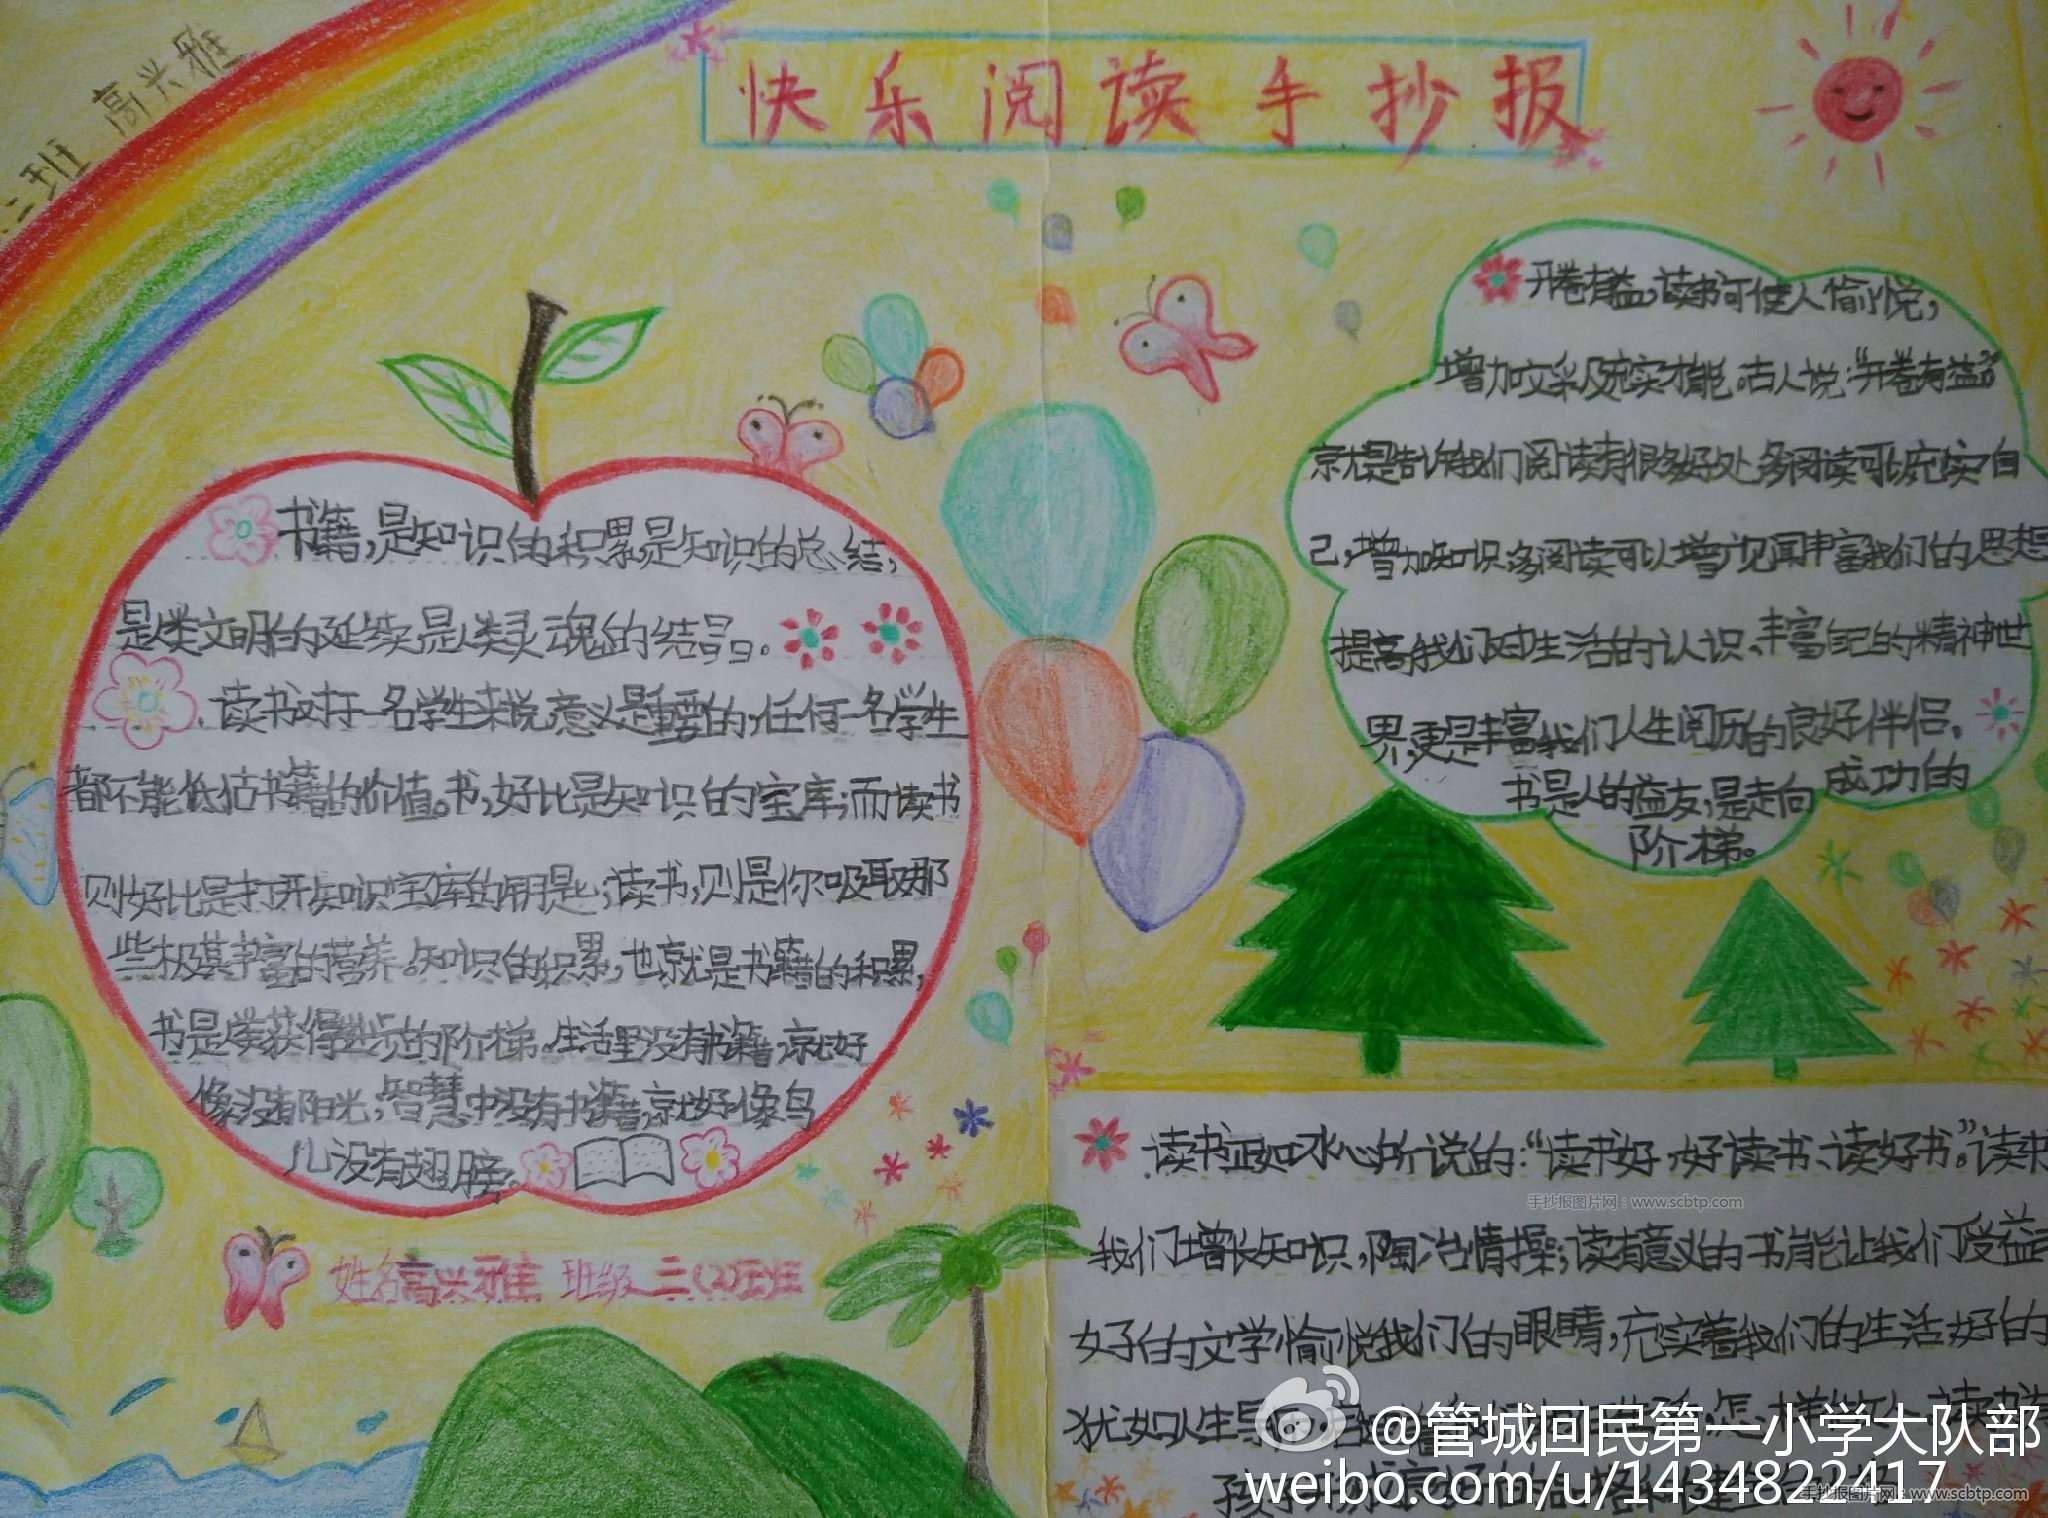 二班 高兴雅
快乐阅读手抄报
书籍,是知识的积累,是知识的总结,
是人类文明的延续,是人类灵魂的结晶。
读书对于一名学生来说,意义是重要的,任何一名学生
都不能低估书籍的价值。书,好比是知识的宝库;而读书
则好比是打开知识宝库的钥匙;读书,则是你吸取那
些极其丰富的营养。知识的积累,也就是书籍的积累,
书是人类获得进步的阶梯。生活里没有书籍,就好
像没有阳光;智慧中没有书籍,就好像鸟
儿没有翅膀。
姓名高兴雅 班级 三(2)班
开卷有益,读书可使人愉悦,
增加文采及充实才能。古人说:“开卷有益”
就是告诉我们阅读有很多好处,多阅读可以充实自
己,增加知识,多阅读可以增广见闻丰富我们的思想
提高我们对生活的认识、丰富自己的精神世
界,更是丰富我们人生阅历的良好伴侣。
书是人的益友,是走向成功的
阶梯。
读书正如冰心所说的:“读书好,好读书、读好书。”读书
手抄报图片网:www.scbtp.com
我们增长知识,陶冶情操;读有意义的书能让我们受益
好的文学愉悦我们的眼睛,充实着我们的生活好的
犹如人生导
@管城回民第一小学大队部
weibo.com/u/1434822417
手抄报图片网:www.scbtp.com